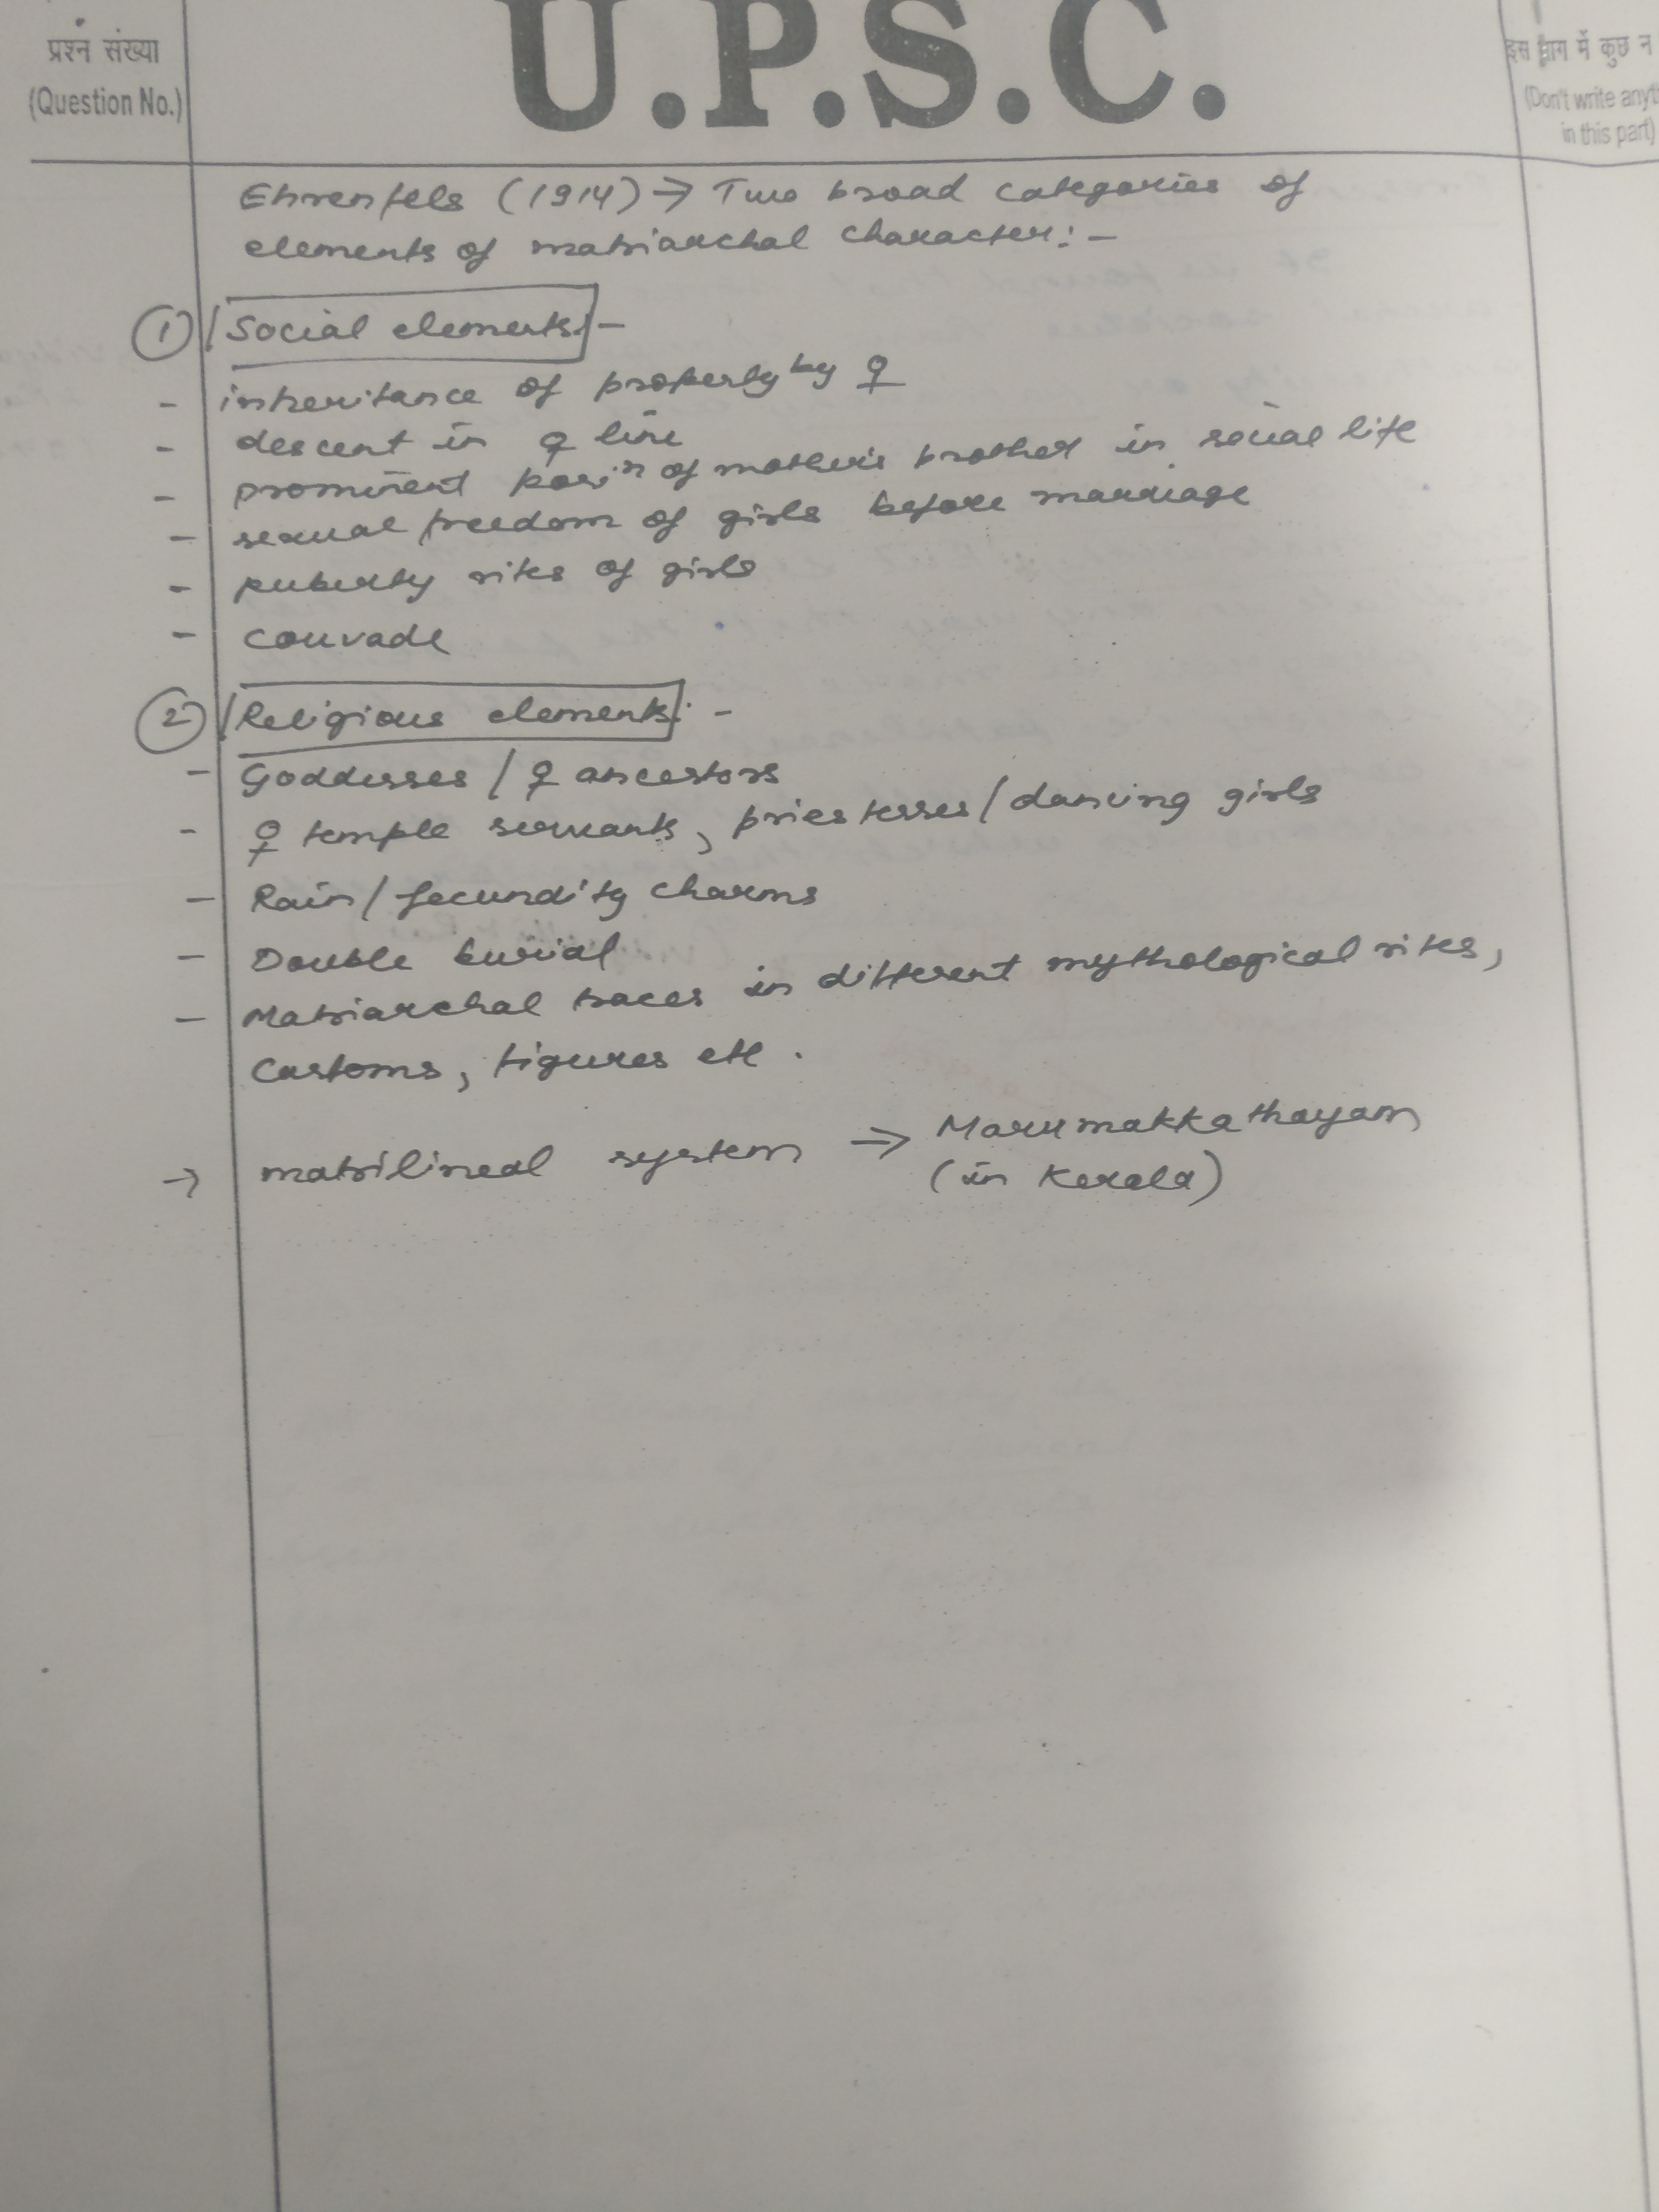 प्रश्न संख्या
(Question No.)
U.P.S.C.
इस भाग में कुछ न
(Don't write anyt
in this part)
Ehrenfels (1914) → Two broad categories of
elements of matriarchal character:-
① Social elements:-
- inheritance of property by ♀
- descent in ♀ line
- prominent posiⁿ of mother's brother in social life
- sexual freedom of girls before marriage
- puberty rites of girls
- couvade
② Religious elements:-
- Goddesses / ♀ ancestors
- ♀ temple servants, priestesses / dancing girls
- Rain / fecundity charms
- Double burial
- Matriarchal traces in different mythological rites,
Customs, figures etc.
→ matrilineal system ⇒ Marumakkathayam
(in Kerala)